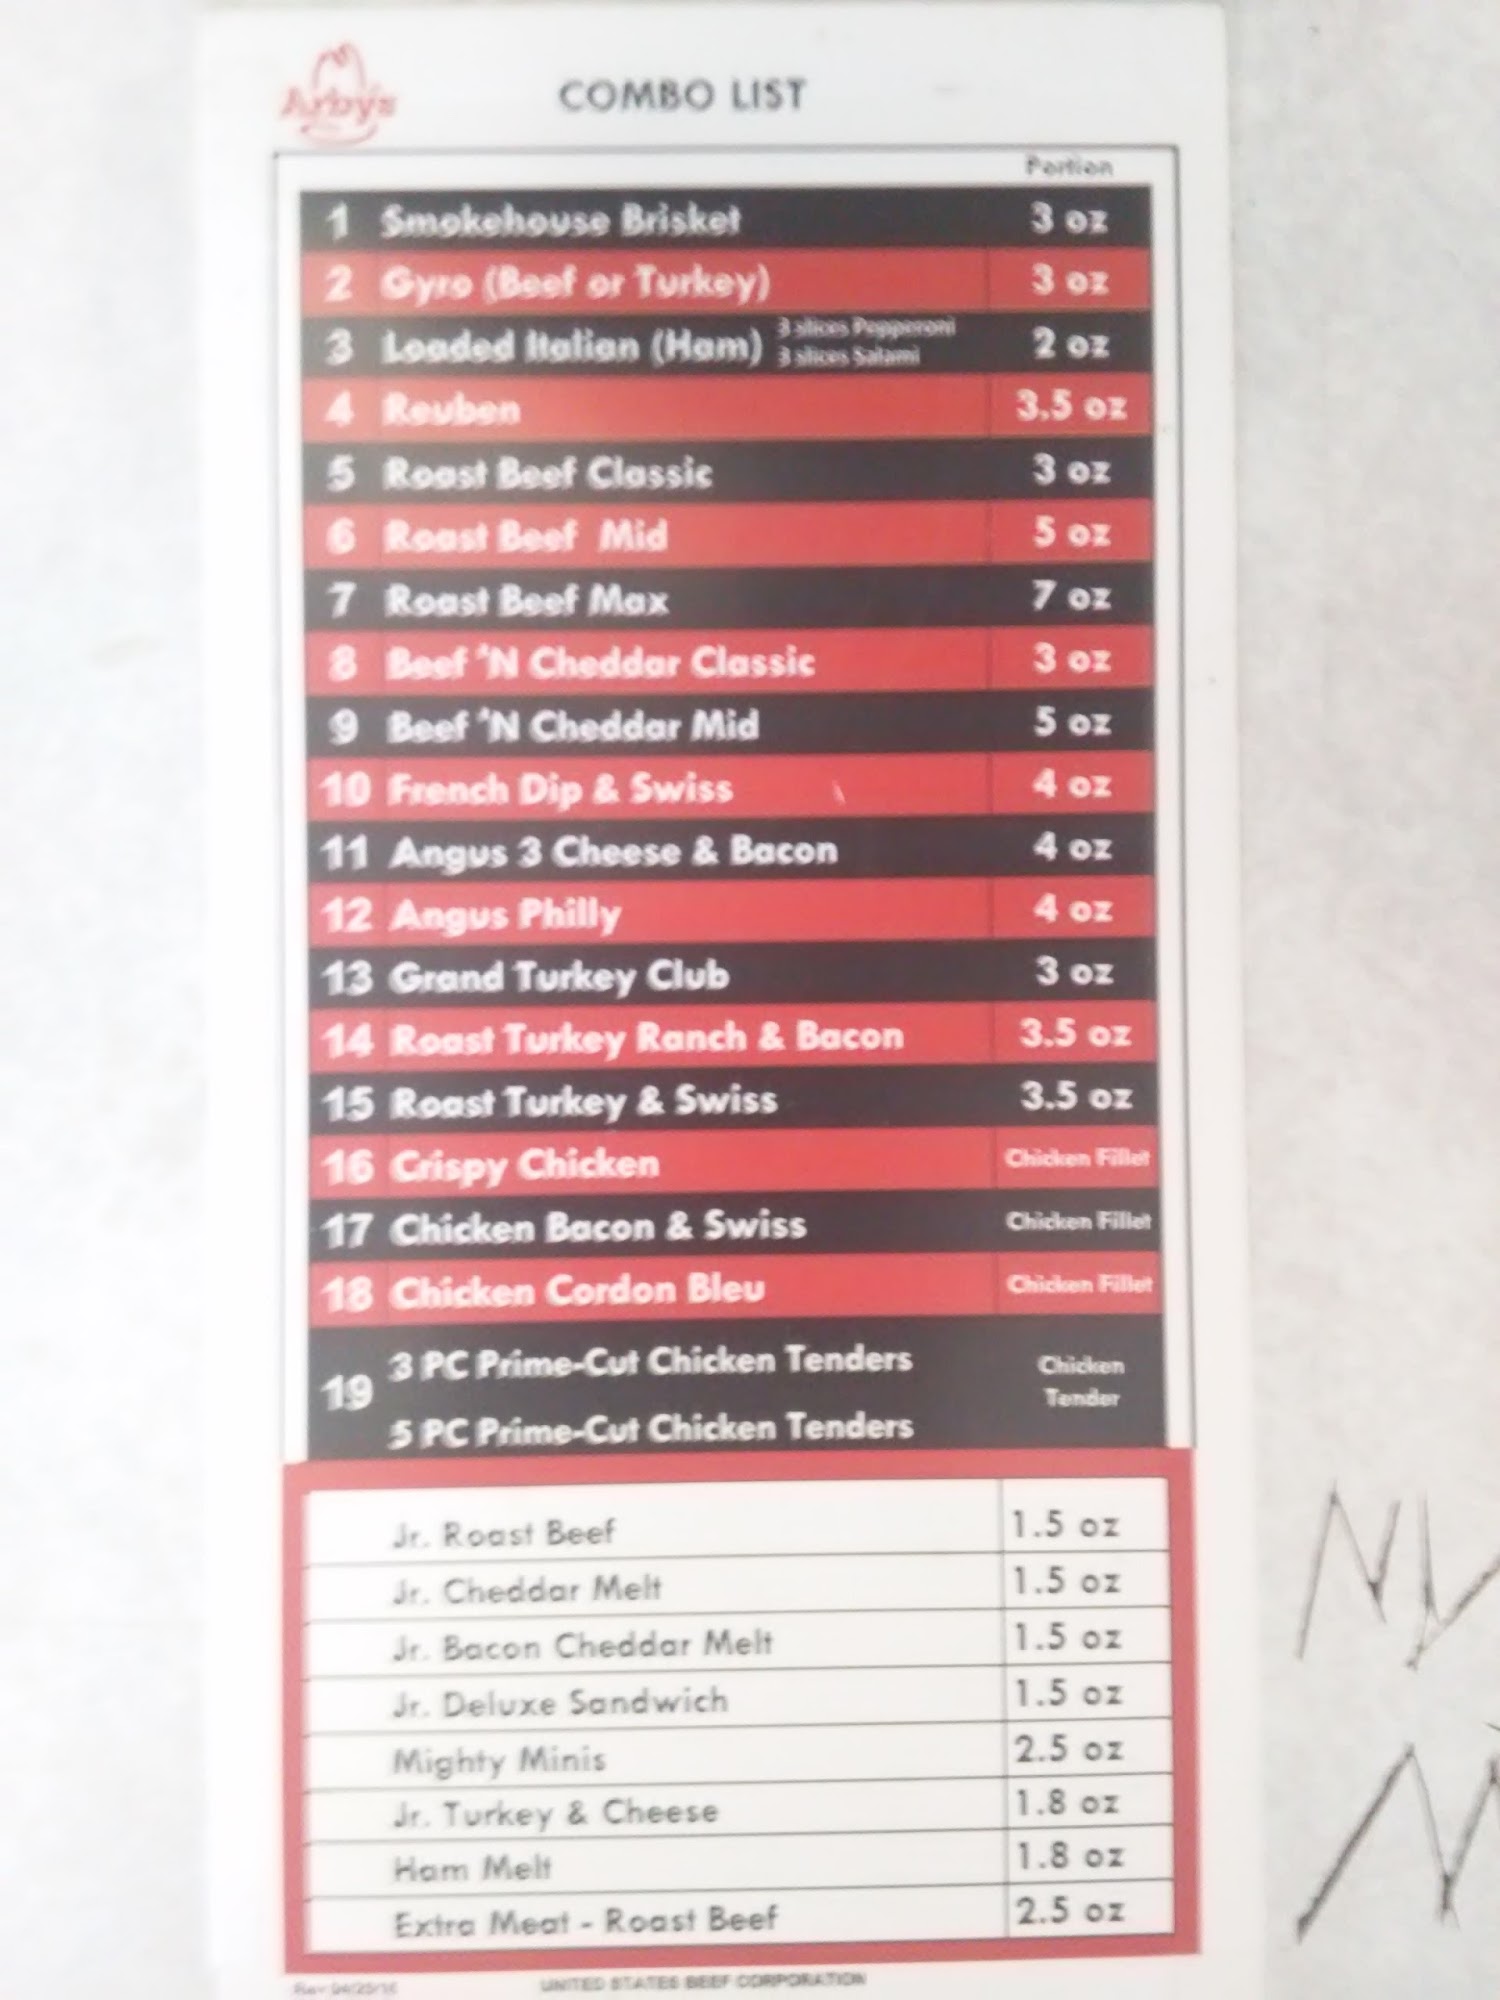 Arby's
COMBO LIST
Portion
1 Smokehouse Brisket 3 oz
2 Gyro (Beef or Turkey) 3 oz
3 Loaded Italian (Ham) 3 slices Pepperoni 3 slices Salami 2 oz
4 Reuben 3.5 oz
5 Roast Beef Classic 3 oz
6 Roast Beef Mid 5 oz
7 Roast Beef Max 7 oz
8 Beef 'N Cheddar Classic 3 oz
9 Beef 'N Cheddar Mid 5 oz
10 French Dip & Swiss 4 oz
11 Angus 3 Cheese & Bacon 4 oz
12 Angus Philly 4 oz
13 Grand Turkey Club 3 oz
14 Roast Turkey Ranch & Bacon 3.5 oz
15 Roast Turkey & Swiss 3.5 oz
16 Crispy Chicken Chicken Fillet
17 Chicken Bacon & Swiss Chicken Fillet
18 Chicken Cordon Bleu Chicken Fillet
19 3 PC Prime-Cut Chicken Tenders Chicken Tender
5 PC Prime-Cut Chicken Tenders
Jr. Roast Beef 1.5 oz
Jr. Cheddar Melt 1.5 oz
Jr. Bacon Cheddar Melt 1.5 oz
Jr. Deluxe Sandwich 1.5 oz
Mighty Minis 2.5 oz
Jr. Turkey & Cheese 1.8 oz
Ham Melt 1.8 oz
Extra Meat - Roast Beef 2.5 oz
UNITED STATES BEEF CORPORATION